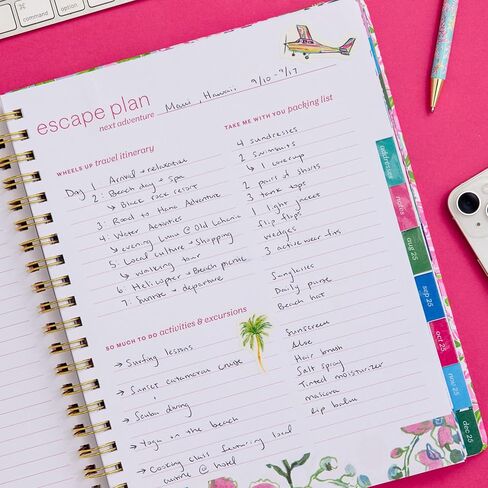 command
option
escape plan
next adventure
Maui, Hawaii 9/10-9/17
WHEELS UP travel itinerary
Day 1: Arrival + relaxation
2: Beach day + spa
↳ Black rock resort
3: Road to Hana Adventure
4: Water Activities
↳ evening Luau @ Old Lahaina
5: Local culture + Shopping
↳ walking tour
6: Heli: Water + Beach picnic
7: Sunrise + departure
TAKE ME WITH YOU packing list
4 sundresses
2 swimsuits
↳ 1 coverup
2 pairs of shorts
3 tank tops
1 light jacket
flip flips
wedges
3 active wear fits
Sunglasses
Daily purse
Beach hat
Sunscreen
Aloe
Hair brush
Salt spray
Tinted moisturizer
mascara
Lip balm
SO MUCH TO DO activities & excursions
→ Surfing lessons
→ Sunset catamaran cruise
→ Scuba diving
→ Yoga on the beach
→ Cooking class featuring local
cuisine @ hotel
addresses
notes
aug 25
sep 25
oct 25
nov 25
dec 25